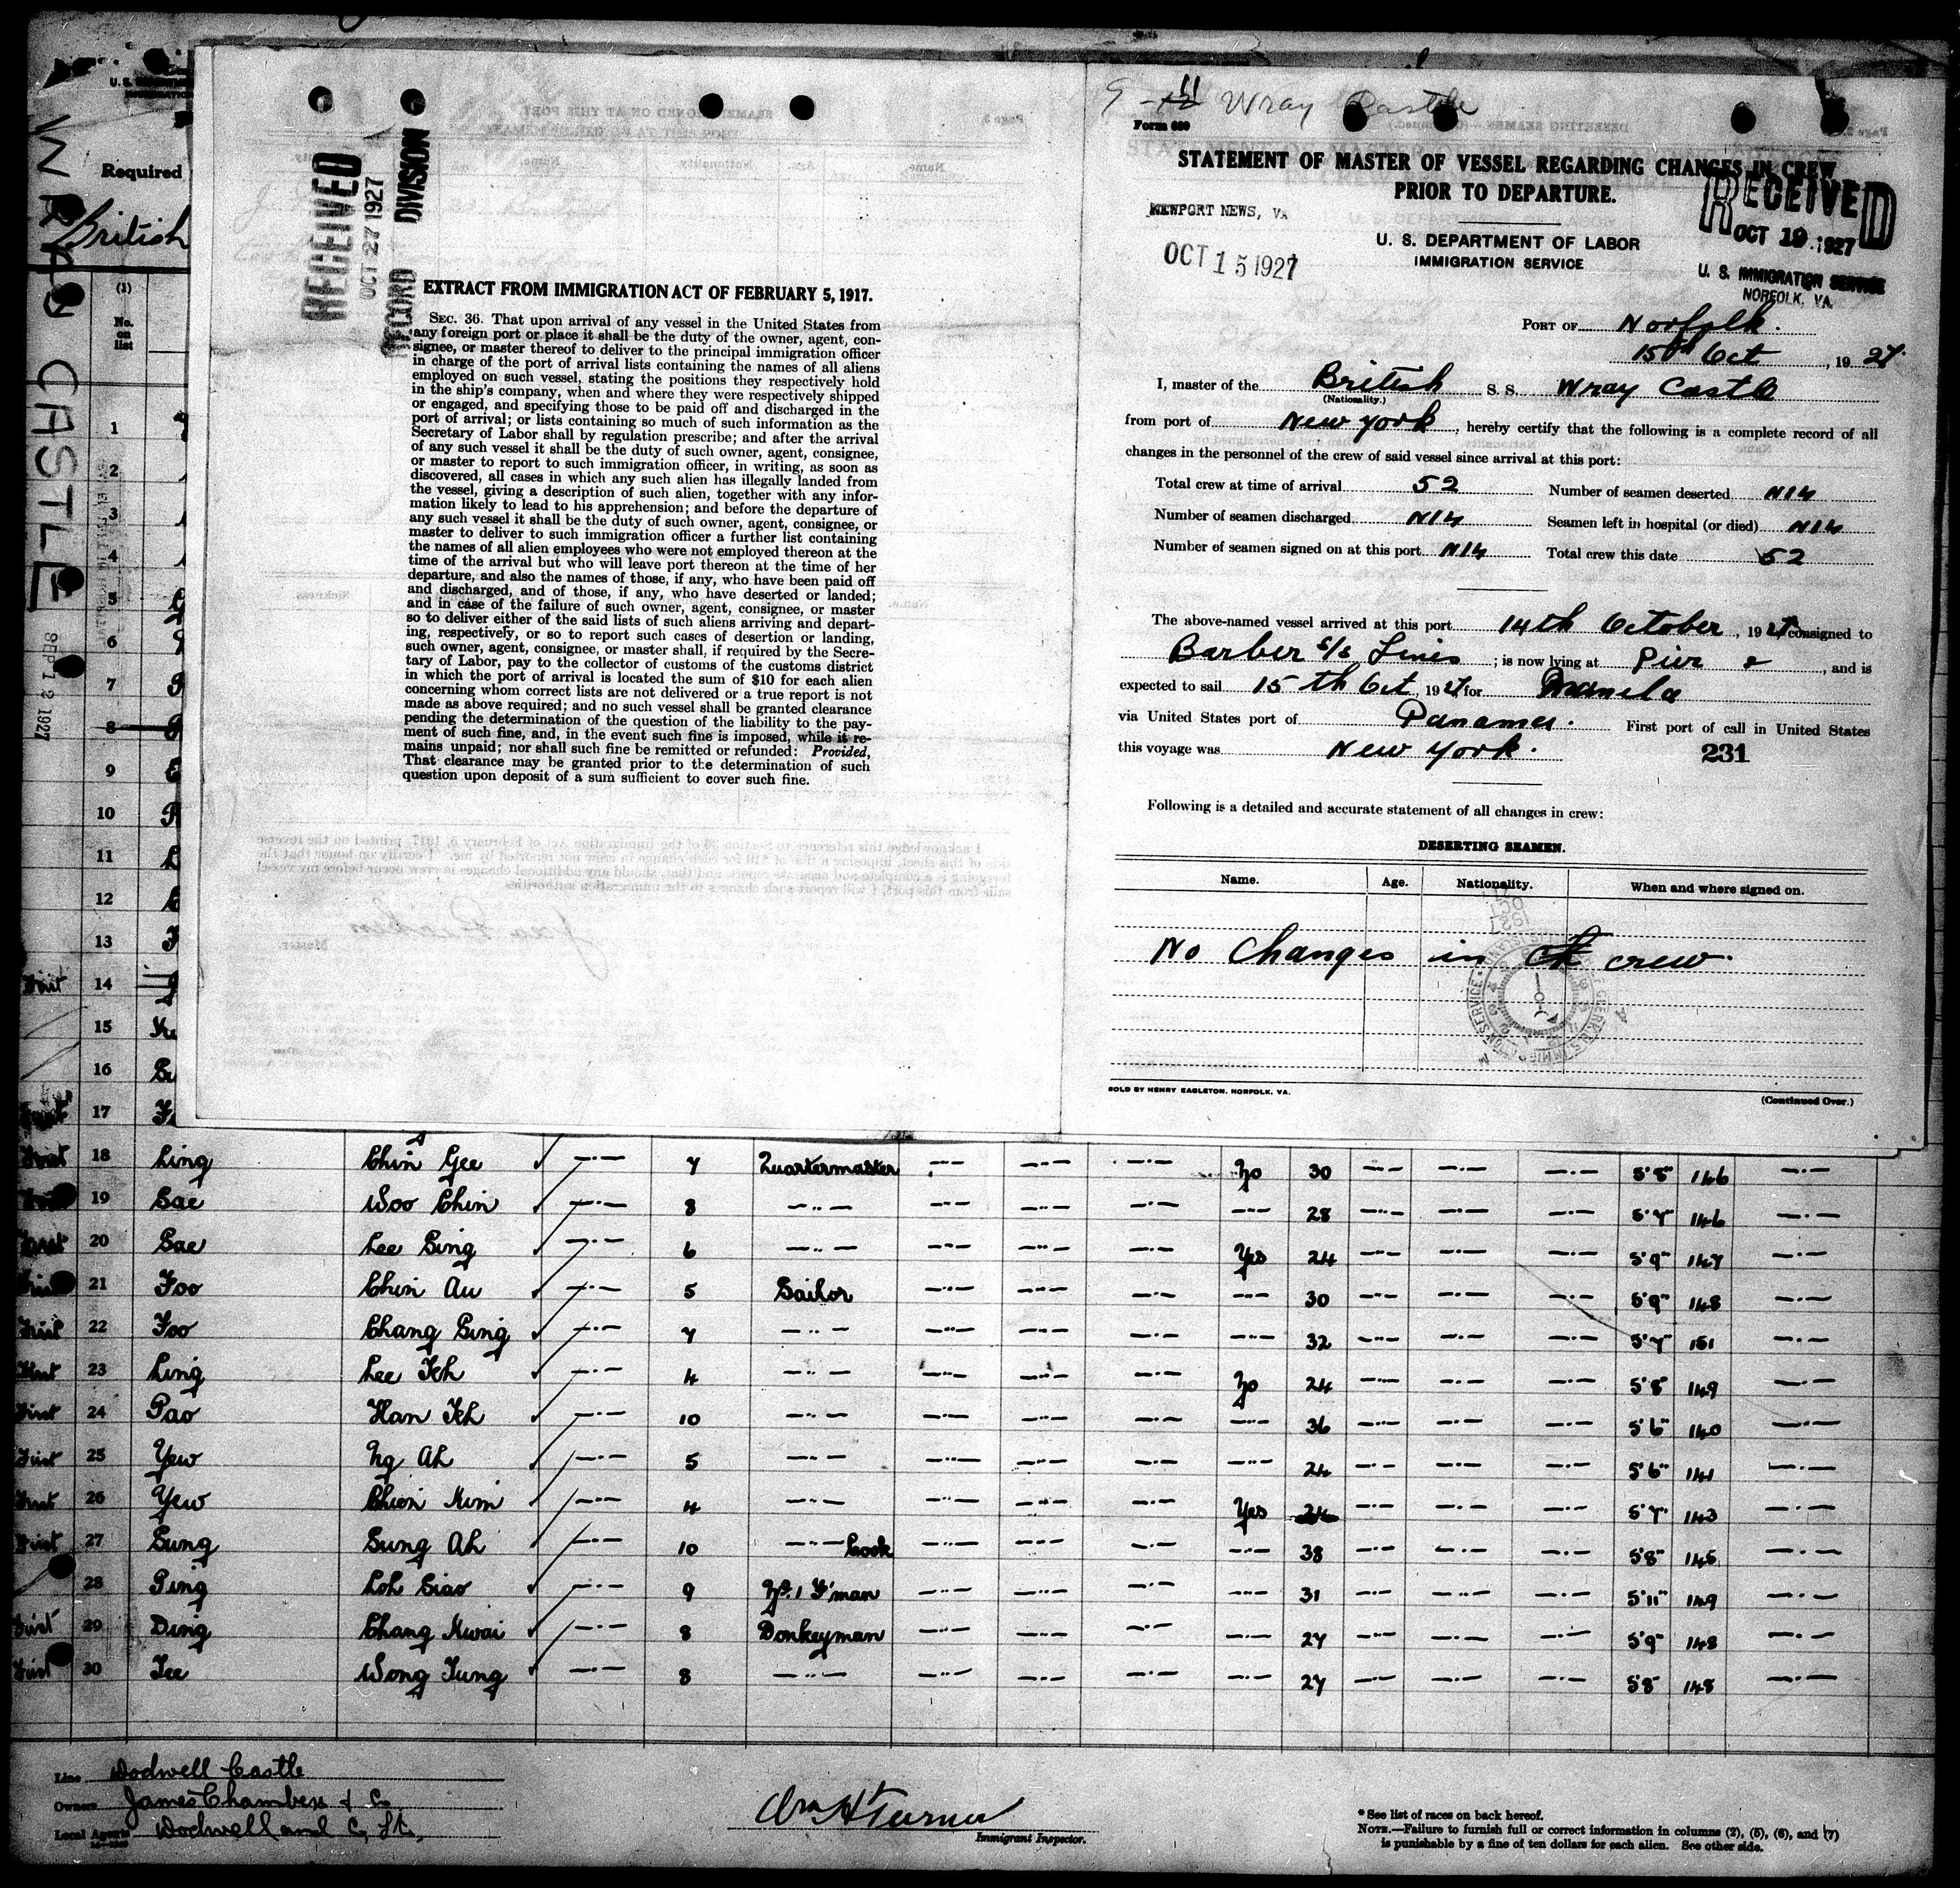 WRAY CASTLE
SEP 12 1927
U. S.
Required
British
(1)
No.
on
list
1
2
3
4
5
6
7
8
9
10
11
12
13
14
15
16
17
RECEIVED
OCT 27 1927
RECORD DIVISION
EXTRACT FROM IMMIGRATION ACT OF FEBRUARY 5, 1917.
SEC. 36. That upon arrival of any vessel in the United States from
any foreign port or place it shall be the duty of the owner, agent, con-
signee, or master thereof to deliver to the principal immigration officer
in charge of the port of arrival lists containing the names of all aliens
employed on such vessel, stating the positions they respectively hold
in the ship's company, when and where they were respectively shipped
or engaged, and specifying those to be paid off and discharged in the
port of arrival; or lists containing so much of such information as the
Secretary of Labor shall by regulation prescribe; and after the arrival
of any such vessel it shall be the duty of such owner, agent, consignee,
or master to report to such immigration officer, in writing, as soon as
discovered, all cases in which any such alien has illegally landed from
the vessel, giving a description of such alien, together with any infor-
mation likely to lead to his apprehension; and before the departure of
any such vessel it shall be the duty of such owner, agent, consignee, or
master to deliver to such immigration officer a further list containing
the names of all alien employees who were not employed thereon at the
time of the arrival but who will leave port thereon at the time of her
departure, and also the names of those, if any, who have been paid off
and discharged, and of those, if any, who have deserted or landed;
and in case of the failure of such owner, agent, consignee, or master
so to deliver either of the said lists of such aliens arriving and depart-
ing, respectively, or so to report such cases of desertion or landing,
such owner, agent, consignee, or master shall, if required by the Secre-
tary of Labor, pay to the collector of customs of the customs district
in which the port of arrival is located the sum of $10 for each alien
concerning whom correct lists are not delivered or a true report is not
made as above required; and no such vessel shall be granted clearance
pending the determination of the question of the liability to the pay-
ment of such fine, and, in the event such fine is imposed, while it re-
mains unpaid; nor shall such fine be remitted or refunded: Provided,
That clearance may be granted prior to the determination of such
question upon deposit of a sum sufficient to cover such fine.
9 - 11 Wray Castle
Form 680
STATEMENT OF MASTER OF VESSEL REGARDING CHANGES IN CREW
PRIOR TO DEPARTURE.
NEWPORT NEWS, VA
OCT 15 1927
U. S. DEPARTMENT OF LABOR
IMMIGRATION SERVICE
RECEIVED
OCT 19 1927
U. S. IMMIGRATION SERVICE
NORFOLK, VA.
PORT OF Norfolk.
15th Oct, 1927.
I, master of the British S. S. Wray Castle
(Nationality.)
from port of New York, hereby certify that the following is a complete record of all
changes in the personnel of the crew of said vessel since arrival at this port:
Total crew at time of arrival 52 Number of seamen deserted Nil
Number of seamen discharged Nil Seamen left in hospital (or died) Nil
Number of seamen signed on at this port Nil Total crew this date 52
The above-named vessel arrived at this port 14th October, 1927 consigned to
Barber S/S Lines; is now lying at Pier 2, and is
expected to sail 15th Oct, 1927 for Manila
via United States port of Panama. First port of call in United States
this voyage was New York. 231
Following is a detailed and accurate statement of all changes in crew:
DESERTING SEAMEN.
Name. Age. Nationality. When and where signed on.
No Changes in crew.
SOLD BY HENRY EAGLETON, NORFOLK, VA.
(Continued Over.)
First 18 Ling Chin Gee 7 Quartermaster No 30 5'8" 146
19 Sae Woo Chin 8 28 5'7" 146
First 20 Sae Lee Sing 6 Yes 24 5'9" 147
21 Foo Chin Au 5 Sailor 30 5'9" 148
First 22 Foo Chang Sing 7 32 5'7" 151
First 23 Ling Lee Teh 4 No 24 5'8" 149
First 24 Pao Han Teh 10 36 5'6" 140
First 25 Yew Ng Ah 5 24 5'6" 141
First 26 Yew Chien Kim 4 Yes 24 5'7" 143
First 27 Sung Sung Ah 10 Cook 38 5'8" 145
28 Ping Loh Siao 9 No. 1 F'man 31 5'11" 149
First 29 Ding Chang Kwai 8 Donkeyman 27 5'9" 148
First 30 Tee Wong Tung 8 27 5'8" 148
Line Dodwell Castle
Owners James Chambers & Co
Local Agents Dodwell and Co, Lt.
Wm H Turner
Immigrant Inspector.
* See list of races on back hereof.
NOTE.—Failure to furnish full or correct information in columns (2), (5), (6), and (7)
is punishable by a fine of ten dollars for each alien. See other side.